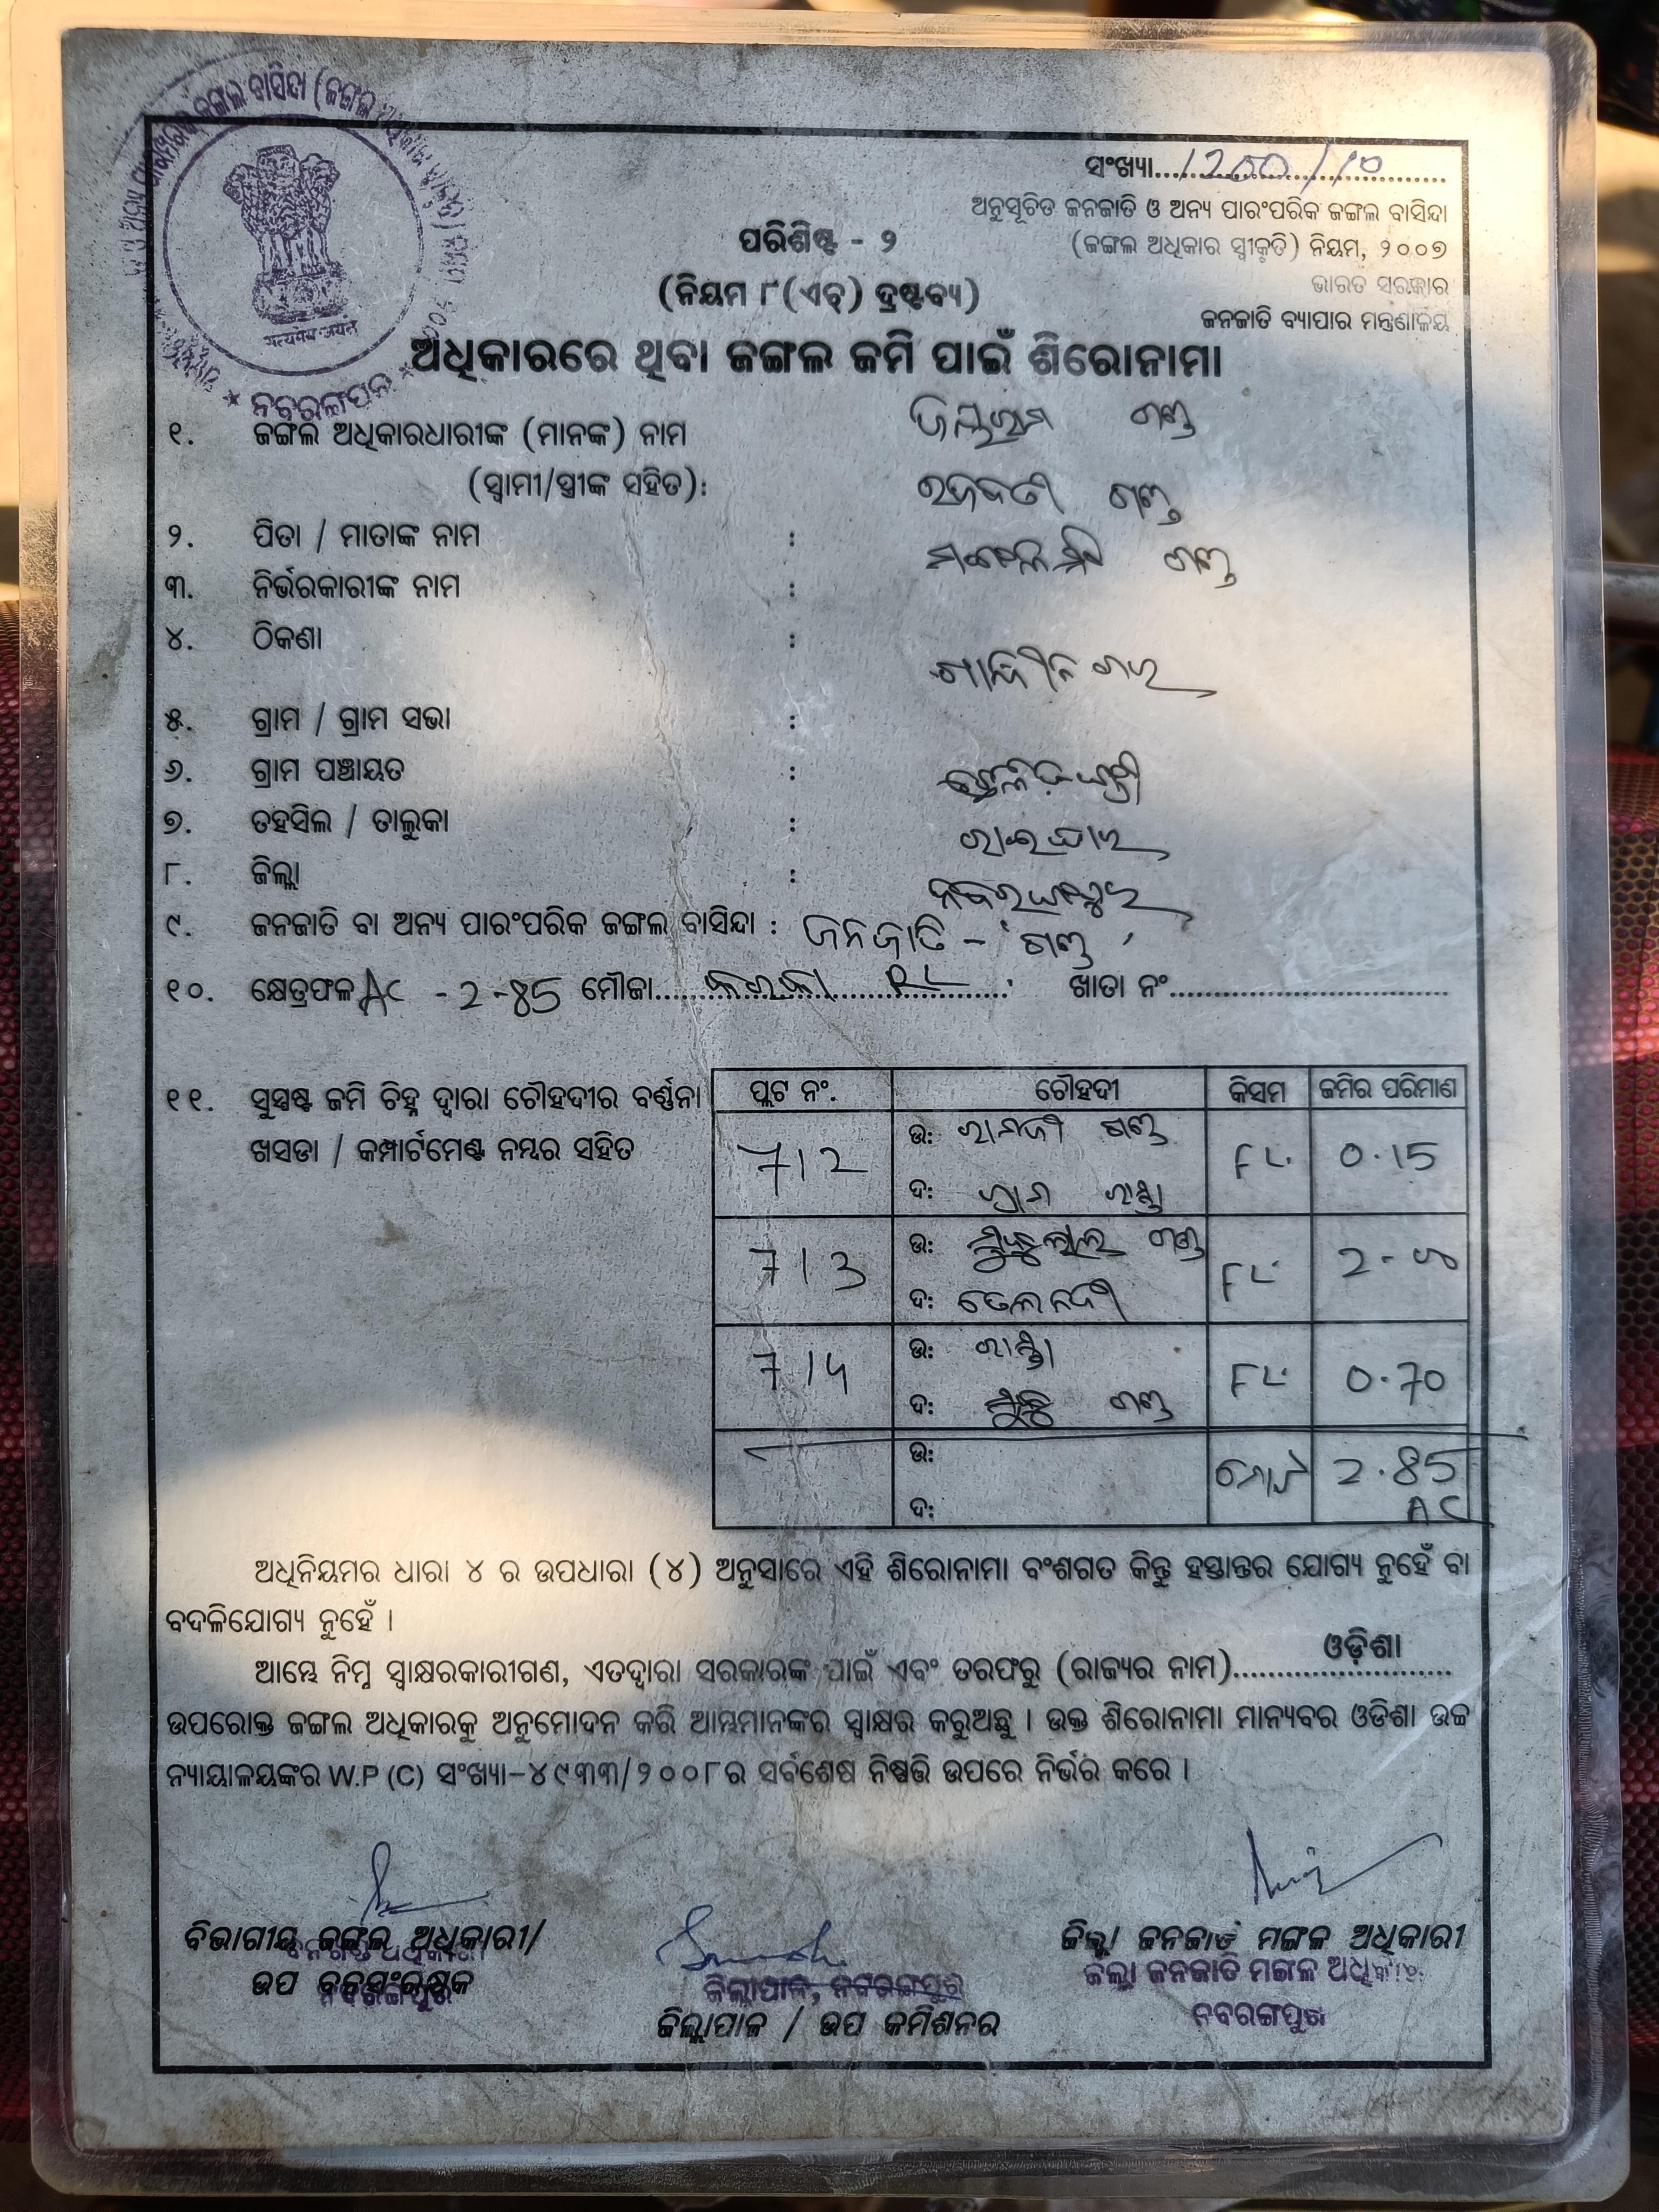 ସଂଖ୍ୟା....1200/10
ଅନୁସୂଚିତ ଜନଜାତି ଓ ଅନ୍ୟ ପାରଂପରିକ ଜଙ୍ଗଲ ବାସିନ୍ଦା
(ଜଙ୍ଗଲ ଅଧିକାର ସ୍ୱୀକୃତି) ନିୟମ, ୨୦୦୭
ଭାରତ ସରକାର
ଜନଜାତି ବ୍ୟାପାର ମନ୍ତ୍ରଣାଳୟ
ପରିଶିଷ୍ଟ - ୨
(ନିୟମ ୮(ଏଚ୍) ଦ୍ରଷ୍ଟବ୍ୟ)
ଅଧିକାରରେ ଥିବା ଜଙ୍ଗଲ ଜମି ପାଇଁ ଶିରୋନାମା
ନବରଙ୍ଗପୁର
୧. ଜଙ୍ଗଲ ଅଧିକାରଧାରୀଙ୍କ (ମାନଙ୍କ) ନାମ ଗଣ୍ଡ
(ସ୍ୱାମୀ/ସ୍ତ୍ରୀଙ୍କ ସହିତ): ଗଣ୍ଡ
୨. ପିତା / ମାତାଙ୍କ ନାମ : ଗଣ୍ଡ
୩. ନିର୍ଭରକାରୀଙ୍କ ନାମ :
୪. ଠିକଣା :
୫. ଗ୍ରାମ / ଗ୍ରାମ ସଭା :
୬. ଗ୍ରାମ ପଞ୍ଚାୟତ :
୭. ତହସିଲ / ତାଲୁକା : ରାଇଘର
୮. ଜିଲ୍ଲା : ନବରଙ୍ଗପୁର
୯. ଜନଜାତି ବା ଅନ୍ୟ ପାରଂପରିକ ଜଙ୍ଗଲ ବାସିନ୍ଦା : ଜନଜାତି - 'ଗଣ୍ଡ'
୧୦. କ୍ଷେତ୍ରଫଳ AC - 2-85 ମୌଜା.... ଖାତା ନଂ....
୧୧. ସୁସ୍ପଷ୍ଟ ଜମି ଚିହ୍ନ ଦ୍ୱାରା ଚୌହଦୀର ବର୍ଣ୍ଣନା
ଖସଡା / କମ୍ପାର୍ଟମେଣ୍ଟ ନମ୍ବର ସହିତ
ପ୍ଲଟ ନଂ. ଚୌହଦୀ କିସମ ଜମିର ପରିମାଣ
712 ଉ: ଗଣ୍ଡ FL. 0.15
ଦ:
713 ଉ: ଗଣ୍ଡ FL. 2-00
ଦ: ତେଲନଦୀ
714 ଉ: ରାସ୍ତା FL. 0.70
ଦ: ଗଣ୍ଡ
ଉ: ମୋଟ 2.85
ଦ: AC
ଅଧିନିୟମର ଧାରା ୪ ର ଉପଧାରା (୪) ଅନୁସାରେ ଏହି ଶିରୋନାମା ବଂଶଗତ କିନ୍ତୁ ହସ୍ତାନ୍ତର ଯୋଗ୍ୟ ନୁହେଁ ବା
ବଦଳିଯୋଗ୍ୟ ନୁହେଁ ।
ଆମ୍ଭେ ନିମ୍ନ ସ୍ୱାକ୍ଷରକାରୀଗଣ, ଏତଦ୍ୱାରା ସରକାରଙ୍କ ପାଇଁ ଏବଂ ତରଫରୁ (ରାଜ୍ୟର ନାମ)....ଓଡ଼ିଶା....
ଉପରୋକ୍ତ ଜଙ୍ଗଲ ଅଧିକାରକୁ ଅନୁମୋଦନ କରି ଆମ୍ଭମାନଙ୍କର ସ୍ୱାକ୍ଷର କରୁଅଛୁ । ଉକ୍ତ ଶିରୋନାମା ମାନ୍ୟବର ଓଡିଶା ଉଚ୍ଚ
ନ୍ୟାୟାଳୟଙ୍କର W.P (C) ସଂଖ୍ୟା-୪୯୩୩/୨୦୦୮ର ସର୍ବଶେଷ ନିଷ୍ପତ୍ତି ଉପରେ ନିର୍ଭର କରେ ।
ବିଭାଗୀୟ ଜଙ୍ଗଲ ଅଧିକାରୀ/
ଉପ ବନସଂରକ୍ଷକ
ଜିଲ୍ଲାପାଳ, ନବରଙ୍ଗପୁର
ଜିଲ୍ଲାପାଳ / ଉପ କମିଶନର
ଜିଲ୍ଲା ଜନଜାତି ମଙ୍ଗଳ ଅଧିକାରୀ
ଜିଲ୍ଲା ଜନଜାତି ମଙ୍ଗଳ ଅଧିକାରୀ
ନବରଙ୍ଗପୁର